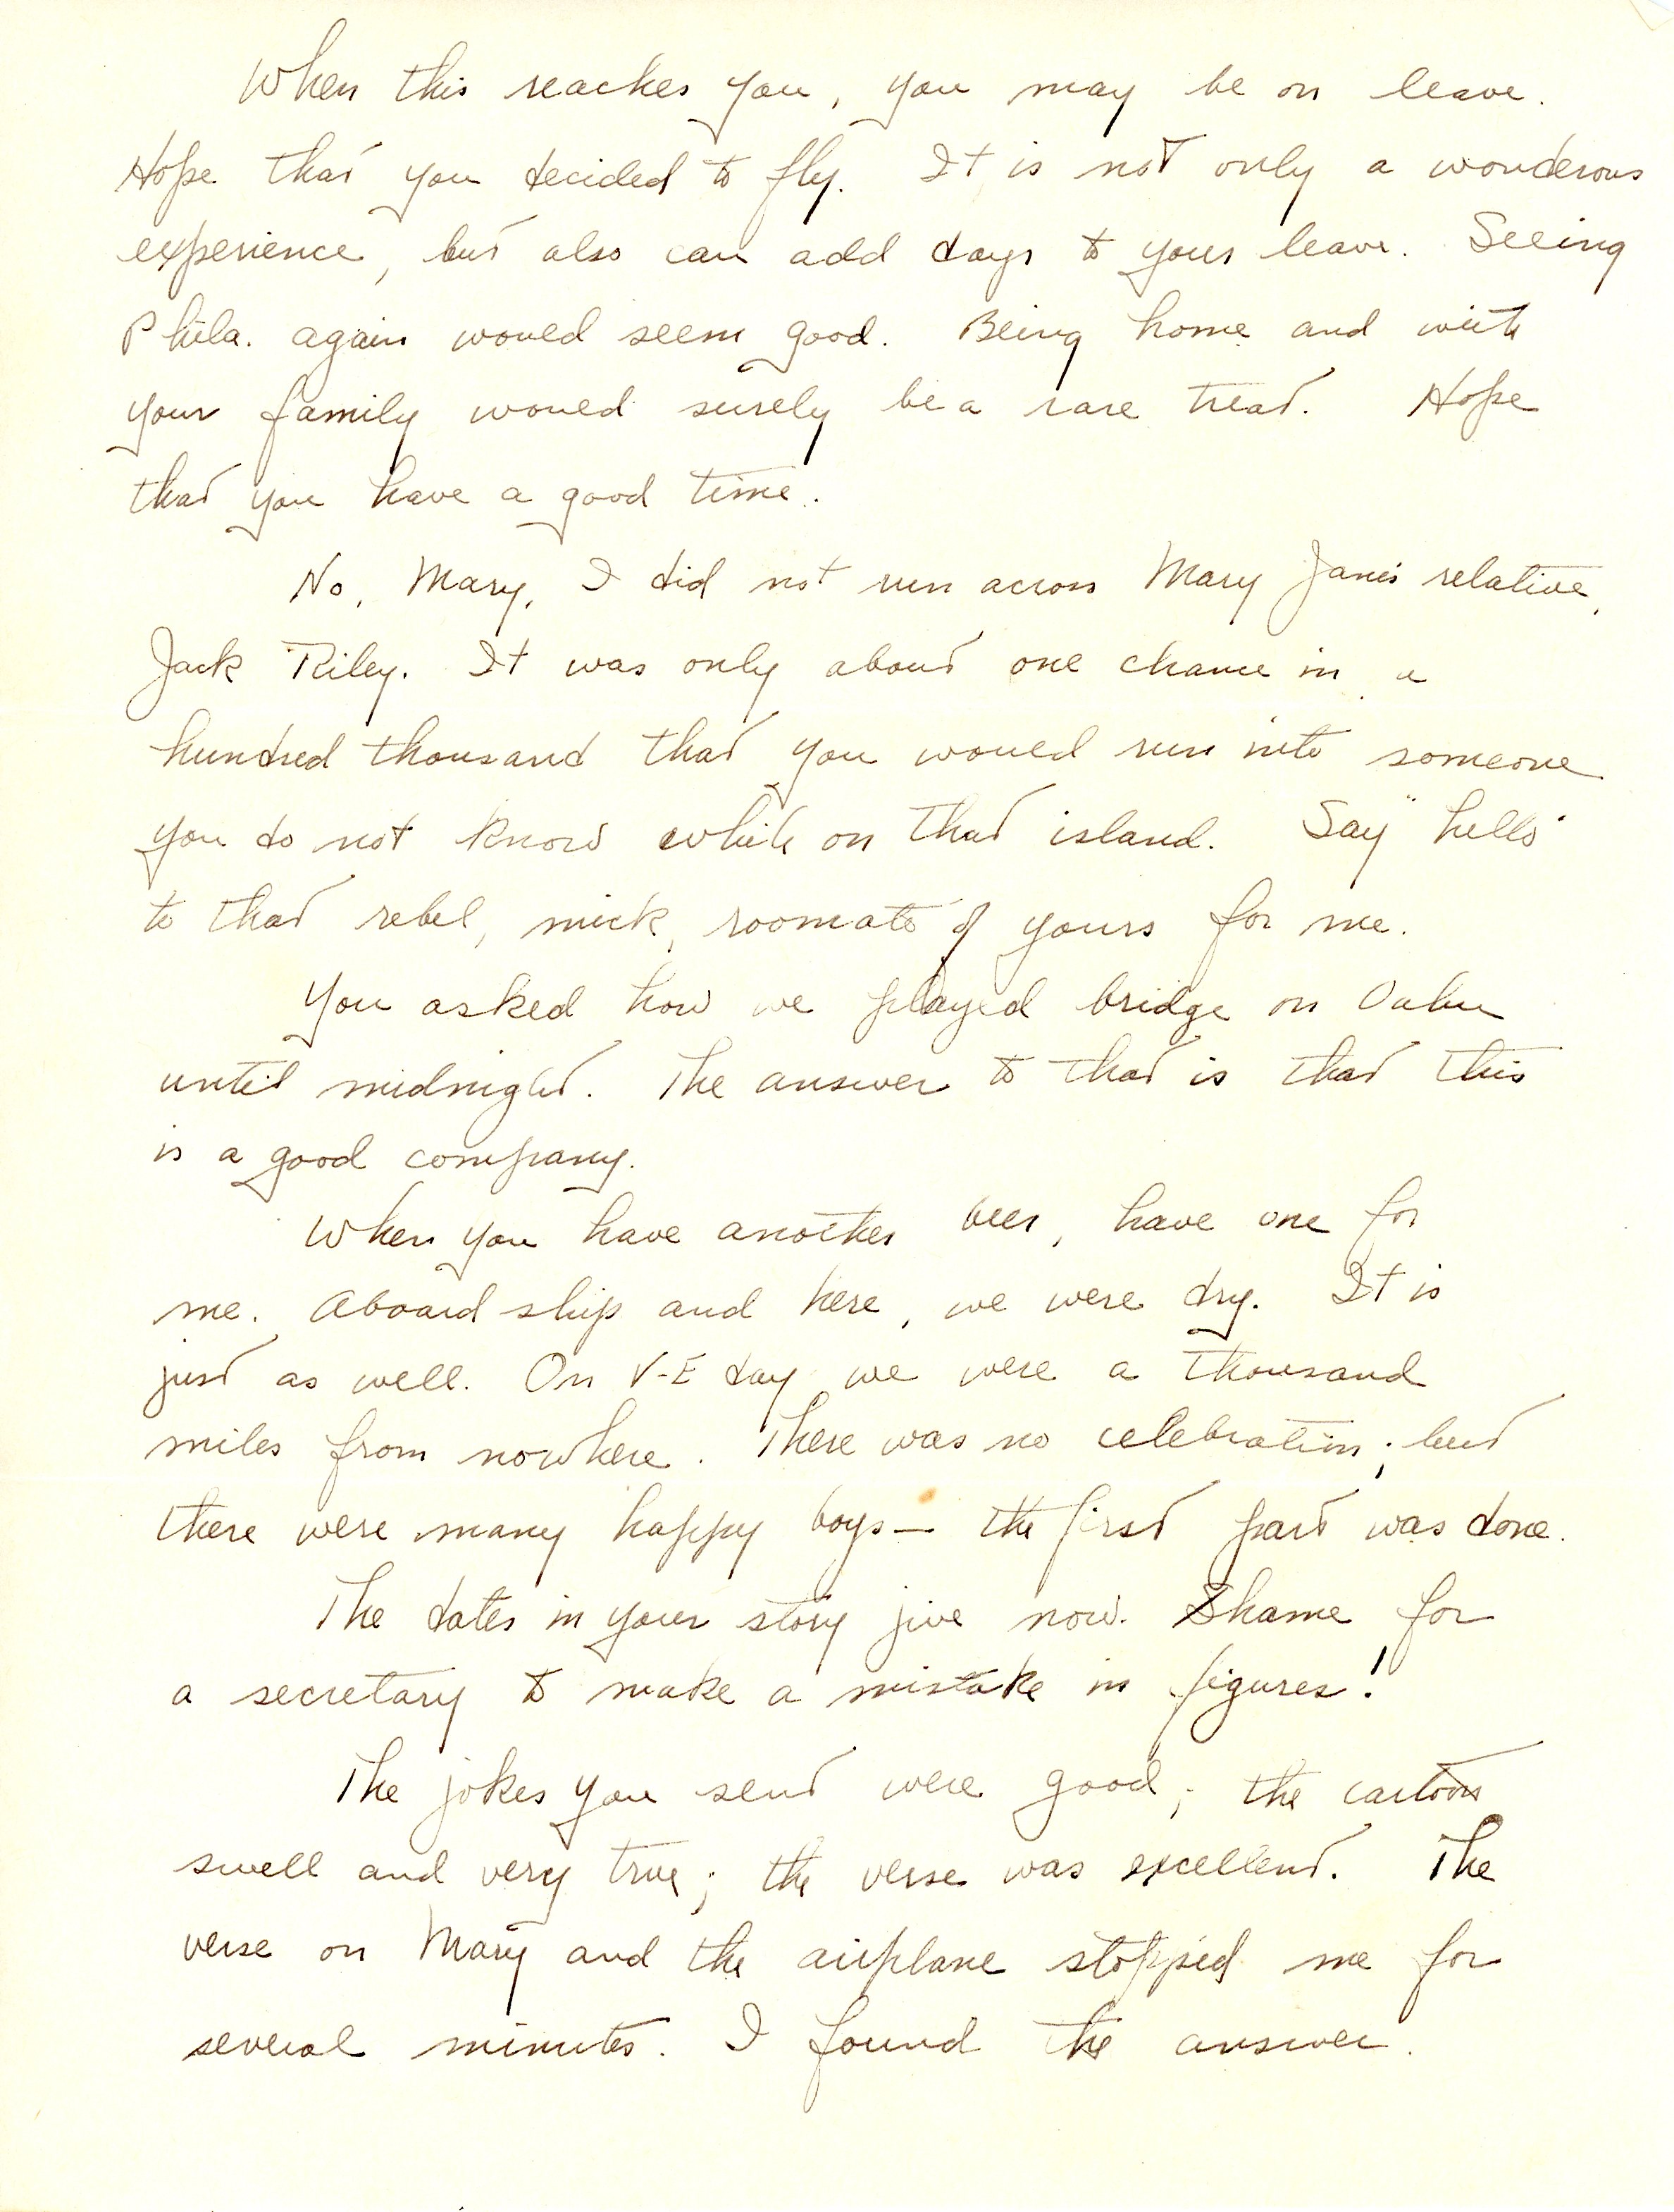 When this reaches you, you may be on leave.
Hope that you decided to fly. It is not only a wonderous
experience, but also can add days to your leave. Seeing
Phila. again would seem good. Being home and with
your family would surely be a rare treat. Hope
that you have a good time.
No, Mary, I did not run across Mary Jane's relative,
Jack Riley. It was only about one chance in a
hundred thousand that you would run into someone
you do not know while on that island. Say "hello"
to that rebel, mick, roomate of yours for me.
You asked how we played bridge on Oahu
until midnight. The answer to that is that this
is a good company.
When you have another beer, have one for
me. Aboard ship and here, we were dry. It is
just as well. On V-E day we were a thousand
miles from nowhere. There was no celebration; but
there were many happy boys — the first part was done.
The dates in your story jive now. Shame for
a secretary to make a mistake in figures!
The jokes you send were good; the cartoon
swell and very true; the verse was excellent. The
verse on Mary and the airplane stopped me for
several minutes. I found the answer.